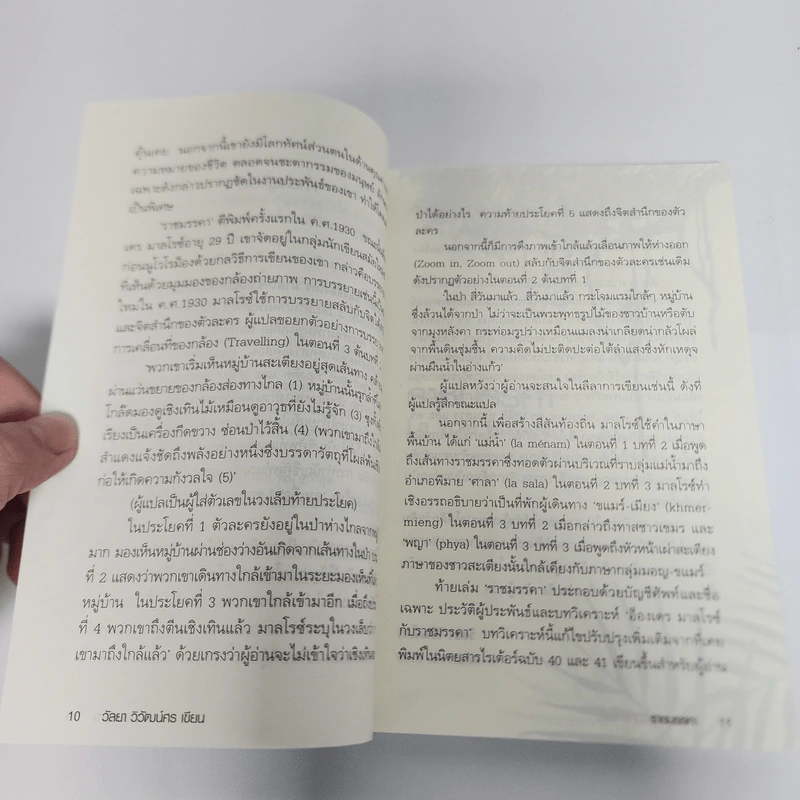 คุ้นเคย นอกจากนี้เขายังมีโลกทัศน์ส่วนตนในด้าน
ความหมายของชีวิต ตลอดจนชะตากรรมของมนุษย์
เฉพาะดังกล่าวปรากฏชัดในงานประพันธ์ของเขา ทำให้
เป็นพิเศษ
'ราชมรรคา' ตีพิมพ์ครั้งแรกใน ค.ศ.1930 ขณะนั้น
เดร มาลโรซ์อายุ 29 ปี เขาจัดอยู่ในกลุ่มนักเขียนสมัยใหม่
ก่อนนูโวโรม็องด้วยกลวิธีการเขียนของเขา กล่าวคือ
ที่เห็นด้วยมุมมองของกล้องถ่ายภาพ การบรรยายเช่นนี้
ใหม่ใน ค.ศ.1930 มาลโรซ์ใช้การบรรยายสลับกับ
และจิตสำนึกของตัวละคร ผู้แปลขอยกตัวอย่างการบรรยาย
การเคลื่อนที่ของกล้อง (Travelling) ในตอนที่ 3 ต้นบทที่
'พวกเขาเริ่มเห็นหมู่บ้านสะเตียงอยู่สุดเส้นทาง
ผ่านแว่นขยายของกล้องส่องทางไกล (1) หมู่บ้านนั้นรุกล้ำ
ใกล้ดมองดูเชิงเทินไม้เหมือนดูอาวุธที่ยังไม่รู้จัก (3)
เรียงเป็นเครื่องกีดขวาง ซ่อนป่าไว้สิ้น (4) (พวกเขามาถึง
สำแดงแจ้งชัดถึงพลังอย่างหนึ่งซึ่งบรรดาวัตถุที่โผล่พ้น
ก่อให้เกิดความกังวลใจ (5)'
(ผู้แปลเป็นผู้ใส่ตัวเลขในวงเล็บท้ายประโยค)
ในประโยคที่ 1 ตัวละครยังอยู่ในป่าห่างไกลจาก
มาก มองเห็นหมู่บ้านผ่านช่องว่างอันเกิดจากเส้นทางในป่า
ที่ 2 แสดงว่าพวกเขาเดินทางใกล้เข้ามาในระยะมองเห็น
หมู่บ้าน ในประโยคที่ 3 พวกเขาใกล้เข้ามาอีก
ที่ 4 พวกเขาถึงตีนเชิงเทินแล้ว มาลโรซ์ระบุในวงเล็บ
เขามาถึงใกล้แล้ว' ด้วยเกรงว่าผู้อ่านจะไม่เข้าใจว่าเชิงเทิน
10 วัลยา วิวัฒน์ศร เขียน
ป่าได้อย่างไร ความท้ายประโยคที่ 5 แสดงถึงจิตสำนึกของตัว
ละคร
นอกจากนี้ก็มีการดึงภาพเข้าใกล้แล้วเลื่อนภาพให้ห่างออก
(Zoom in, Zoom out) สลับกับจิตสำนึกของตัวละครเช่นเดิม
ดังปรากฏตัวอย่างในตอนที่ 2 ต้นบทที่ 1
'ในป่า สี่วันมาแล้ว สี่วันมาแล้ว กระโจมแรมใกล้ๆ หมู่บ้าน
ซึ่งล้วนได้จากป่า ไม่ว่าจะเป็นพระพุทธรูปไม้ของชาวบ้านหรือตับ
จากมุงหลังคา กระท่อมรูปร่างเหมือนแมลงน่าเกลียดน่ากลัวโผล่
จากพื้นดินชุ่มชื้น ความคิดไม่ปะติดปะต่อใต้ลำแสงซึ่งหักเหดุจ
ผ่านผืนน้ำในอ่างแก้ว'
ผู้แปลหวังว่าผู้อ่านจะสนใจในลีลาการเขียนเช่นนี้ ดังที่
ผู้แปลรู้สึกขณะแปล
นอกจากนี้ เพื่อสร้างสีสันท้องถิ่น มาลโรซ์ใช้คำในภาษา
พื้นบ้าน ได้แก่ 'แม่น้ำ' (la ménam) ในตอนที่ 1 บทที่ 2 เมื่อพูด
ถึงเส้นทางราชมรรคาซึ่งทอดตัวผ่านบริเวณที่ราบลุ่มแม่น้ำมาถึง
อำเภอพิมาย 'ศาลา' (la sala) ในตอนที่ 2 บทที่ 3 มาลโรซ์ทำ
เชิงอรรถอธิบายว่าเป็นที่พักผู้เดินทาง 'ขแมร์-เมียง' (khmer-
mieng) ในตอนที่ 3 บทที่ 2 เมื่อกล่าวถึงทาสชาวเขมร และ
'พญา' (phya) ในตอนที่ 3 บทที่ 3 เมื่อพูดถึงหัวหน้าเผ่าสะเตียง
ภาษาของชาวสะเตียงนั้นใกล้เคียงกับภาษากลุ่มมอญ-ขแมร์
ท้ายเล่ม 'ราชมรรคา' ประกอบด้วยบัญชีศัพท์และชื่อ
เฉพาะ ประวัติผู้ประพันธ์และบทวิเคราะห์ 'อ็องเดร มาลโรซ์
กับราชมรรคา' บทวิเคราะห์นี้แก้ไขปรับปรุงเพิ่มเติมจากที่เคย
พิมพ์ในนิตยสารไรเตอร์ฉบับ 40 และ 41 เขียนขึ้นสำหรับผู้อ่าน
ราชมรรคา 11